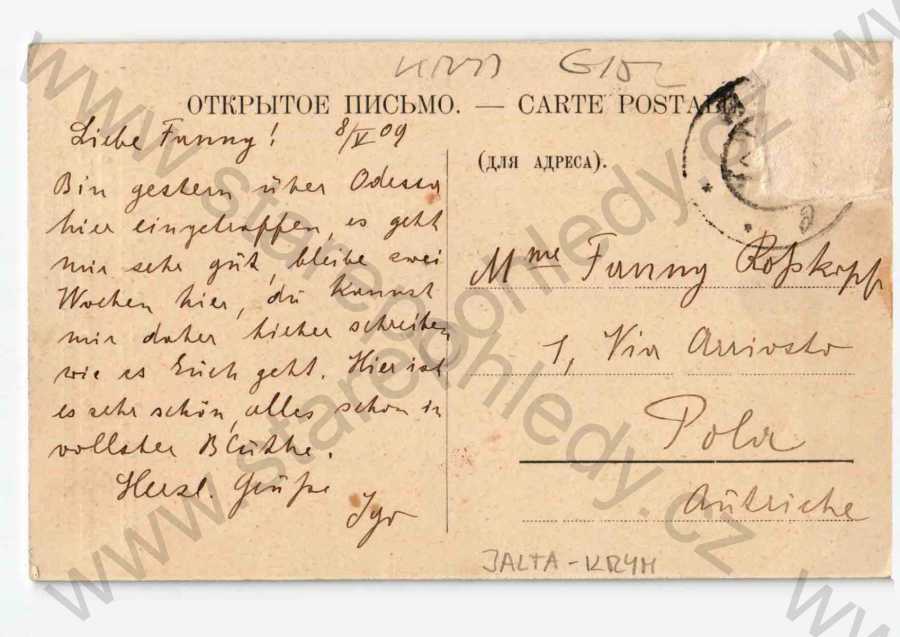 ОТКРЫТОЕ ПИСЬМО. — CARTE POSTALE.
Liebe Fanny! 8/V 09
Bin gestern über Odessa
hier eingetroffen, es geht
mir sehr gut, bleibe zwei
Wochen hier, du kannst
mir daher hieher schreiben
wie es Euch geht. Hier ist
es sehr schön, alles schon in
vollster Blüthe.
Herzl. Grüße
(ДЛЯ АДРЕСА).
Mme Fanny Roßkopf
1, Via Arriosto
Pola
Autriche
JALTA-KRYM
www.starepohledy.cz
www.starepohledy.cz